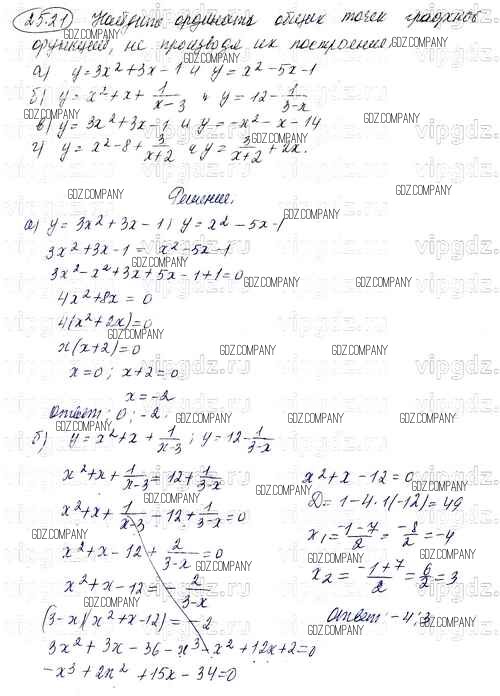 25.21 Найдите ординаты общих точек графиков
функций, не производя их построение.
а) y = 3x² + 3x - 1 и y = x² - 5x - 1
б) y = x² + x + 1/(x-3) и y = 12 - 1/(3-x)
в) y = 3x² + 3x - 1 и y = -x² - x - 14
г) y = x² - 8 + 3/(x+2) и y = 3/(x+2) + 2x.
Решение.
а) y = 3x² + 3x - 1; y = x² - 5x - 1
3x² + 3x - 1 = x² - 5x - 1
3x² - x² + 3x + 5x - 1 + 1 = 0
4x² + 8x = 0
4(x² + 2x) = 0
x(x+2) = 0
x = 0; x + 2 = 0
x = -2
Ответ: 0; -2.
б) y = x² + x + 1/(x-3); y = 12 - 1/(3-x)
x² + x + 1/(x-3) = 12 + 1/(3-x)
x² + x + 1/(x-3) - 12 + 1/(3-x) = 0
x² + x - 12 + 2/(3-x) = 0
x² + x - 12 = - 2/(3-x)
(3-x)(x² + x - 12) = -2
3x² + 3x - 36 - x³ - x² + 12x + 2 = 0
-x³ + 2x² + 15x - 34 = 0
x² + x - 12 = 0
D = 1 - 4·1(-12) = 49
x₁ = (-1-7)/2 = -8/2 = -4
x₂ = (-1+7)/2 = 6/2 = 3
Ответ: -4; 3
GDZ.COMPANY
vipgdz.ru